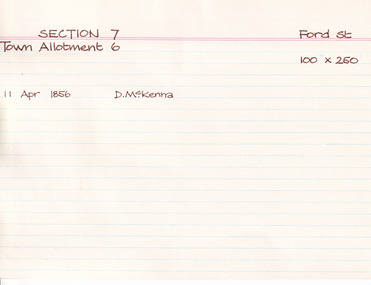 SECTION 7 Ford St
Town Allotment 6
100 x 250
11 Apr 1856 D. McKenna